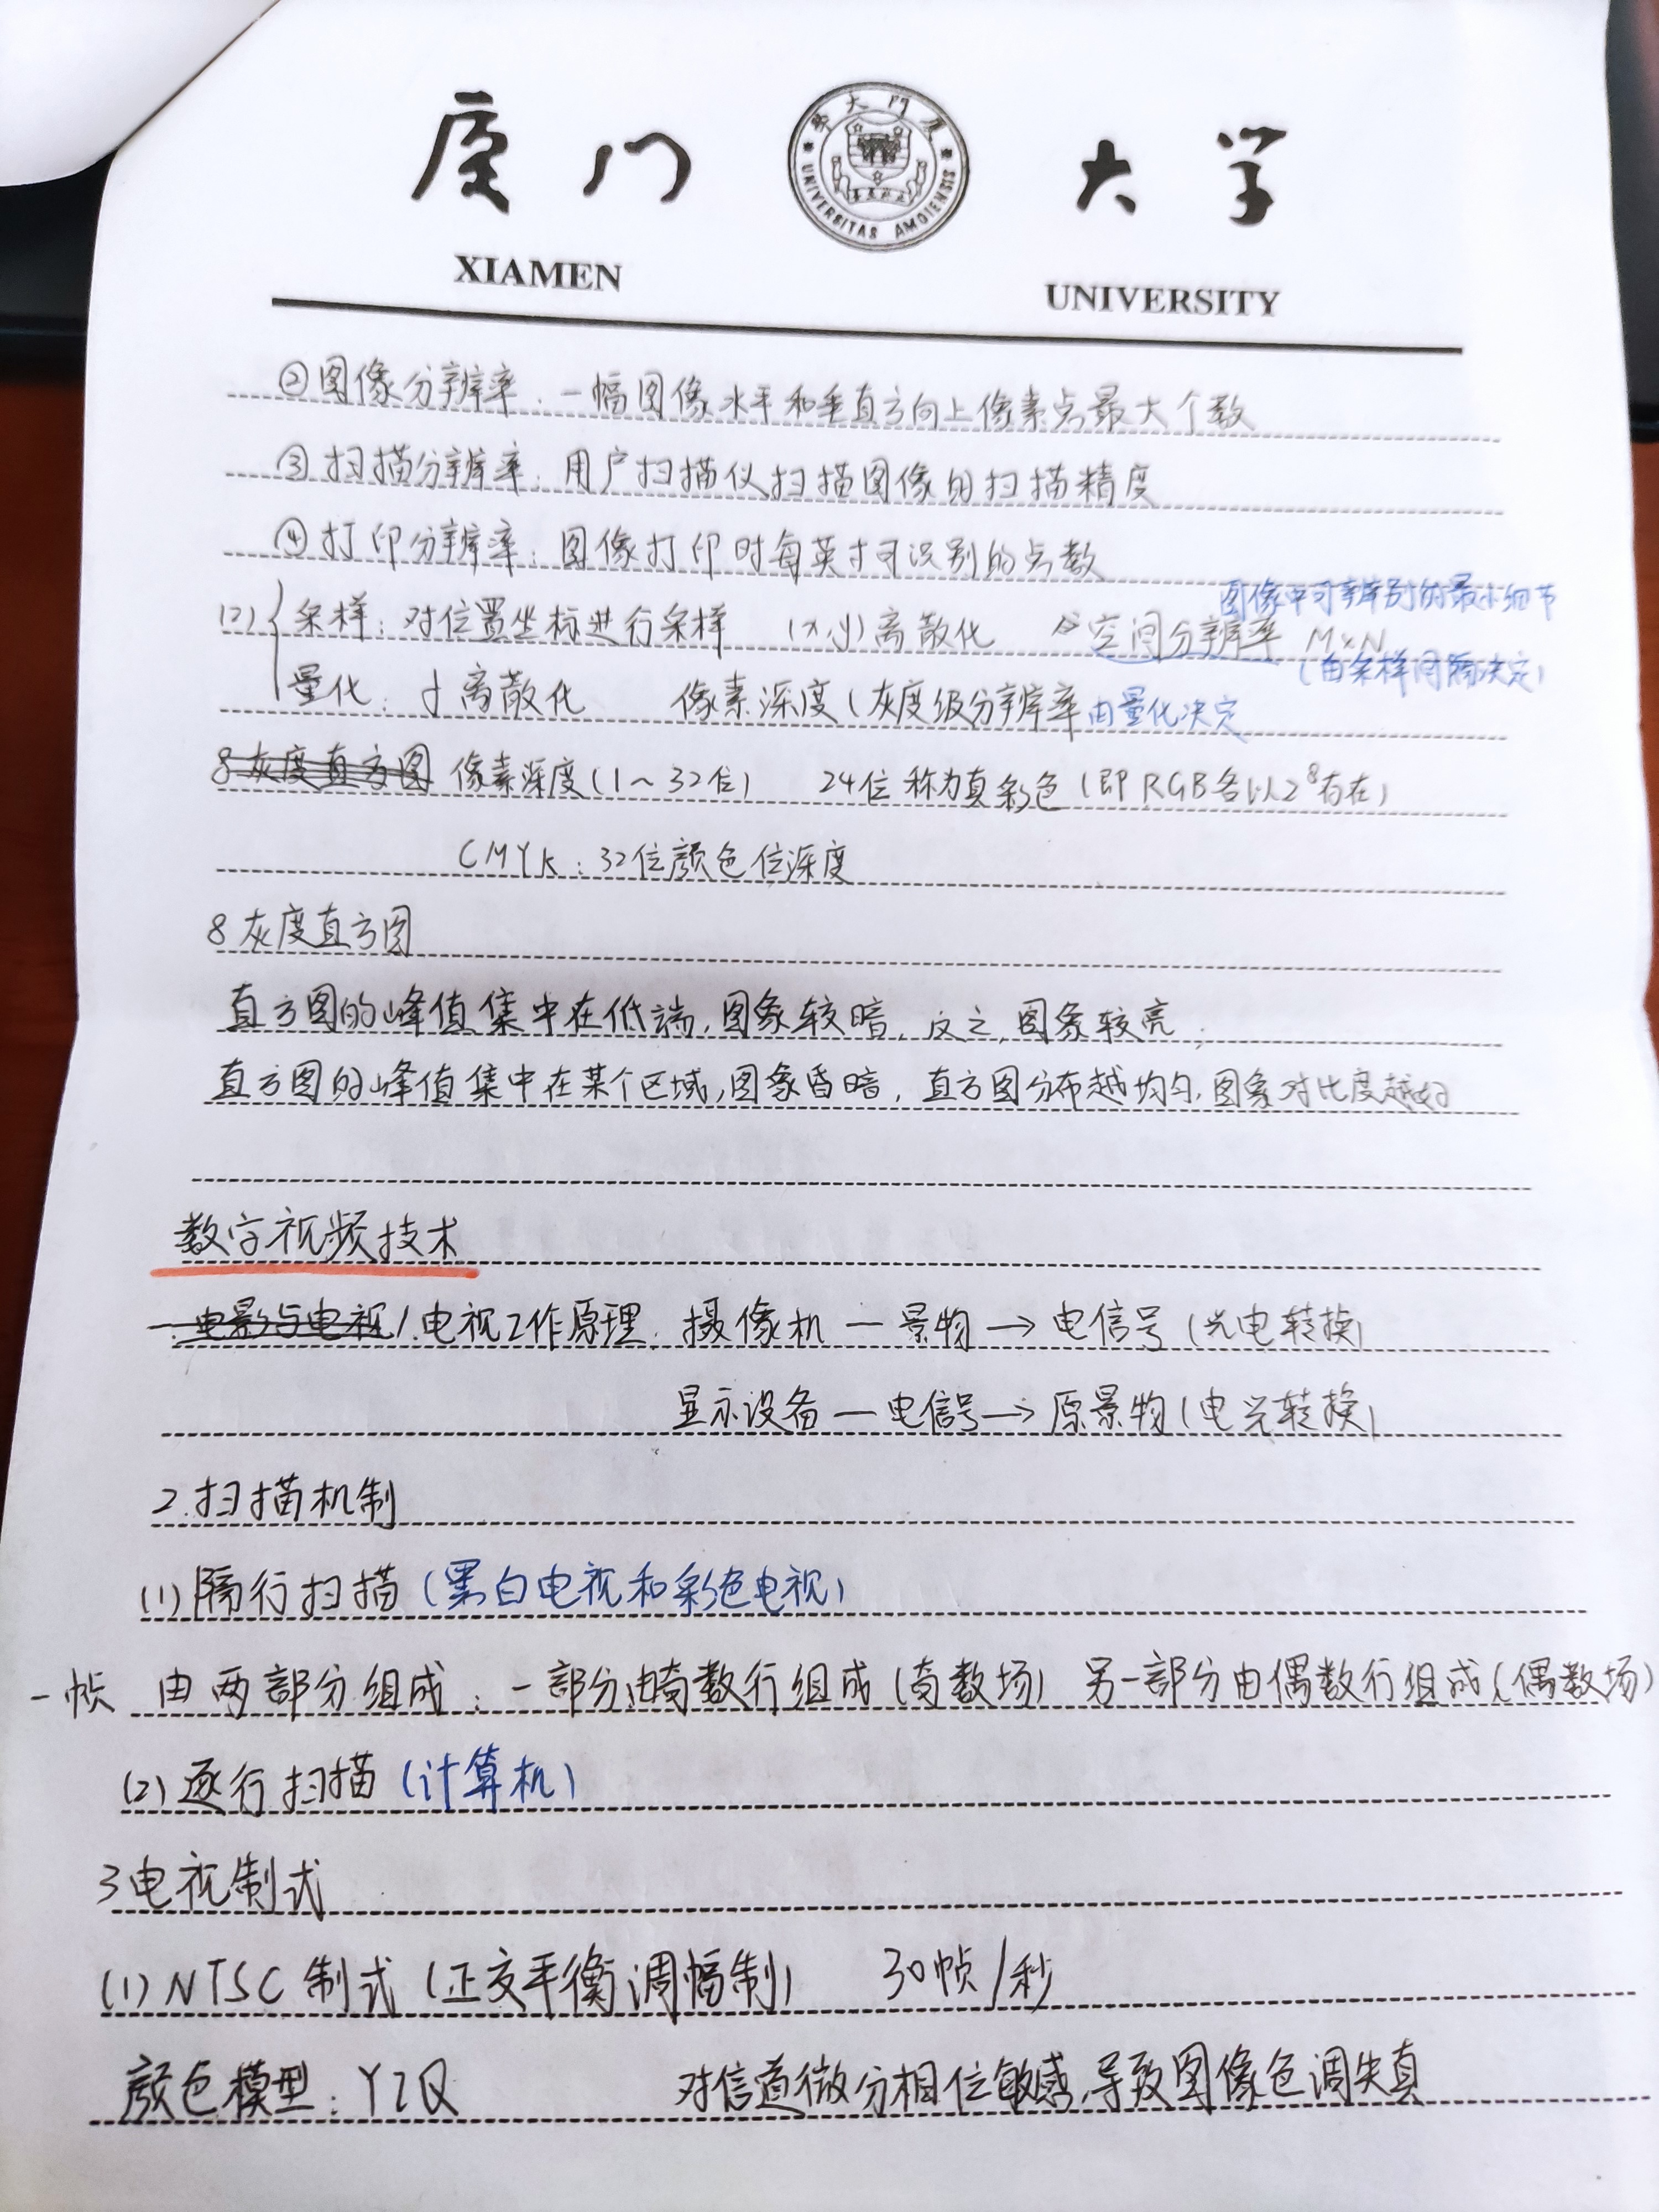 厦门大学
XIAMEN UNIVERSITY
②图像分辨率：一幅图像水平和垂直方向上像素点最大个数
③扫描分辨率：用户扫描仪扫描图像的扫描精度
④打印分辨率：图像打印时每英寸可识别的点数
图像中可辨别的最小细节
(2) 采样：对位置坐标进行采样 (x,y)离散化 空间分辨率 M×N
(由采样间隔决定)
量化：f离散化 像素深度(灰度级分辨率 由量化决定
8灰度直方图 像素深度(1～32位) 24位称为真彩色(即RGB各以2⁸存在)
CMYK：32位颜色位深度
8 灰度直方图
直方图的峰值集中在低端，图象较暗，反之，图象较亮；
直方图的峰值集中在某个区域，图象昏暗，直方图分布越均匀，图象对比度越好
数字视频技术
一.电影与电视 1.电视工作原理：摄像机—景物→电信号(光电转换)
显示设备—电信号→原景物(电光转换)
2.扫描机制
(1)隔行扫描(黑白电视和彩色电视)
一帧 由两部分组成：一部分由奇数行组成(奇数场) 另一部分由偶数行组成(偶数场)
(2)逐行扫描(计算机)
3电视制式
(1)NTSC制式(正交平衡调幅制) 30帧/秒
颜色模型：YIQ 对信道微分相位敏感，导致图像色调失真